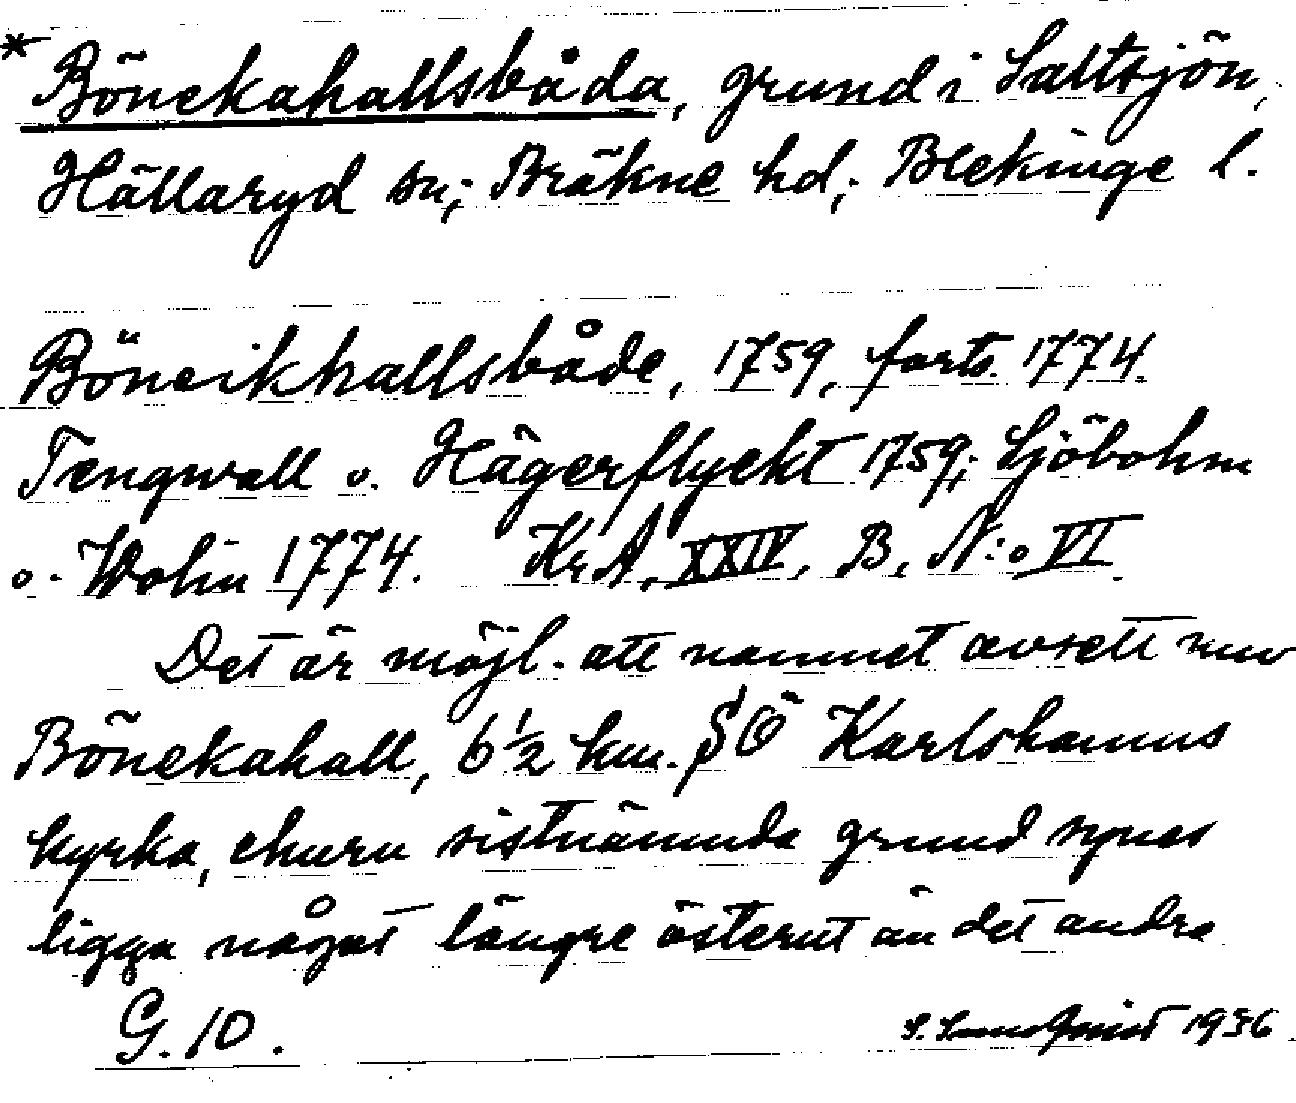 * Bönekahallsbåda, grund i Saltsjön,
Hällaryd sn; Bräkne hd; Blekinge l.
Böneikhallsbåde, 1759, forts. 1774.
Tengwall o. Hägerflyckt 1759; Sjöbohm
o. Wolin 1774. KrA, XXIV, B, N:o VI
Det är möjl. att namnet avsett nuv
Bönekahall, 6 1/2 km. SÖ Karlshamns
kyrka, churu sistnämnda grund synes
ligga något längre österut än det andra
G. 10. 1936